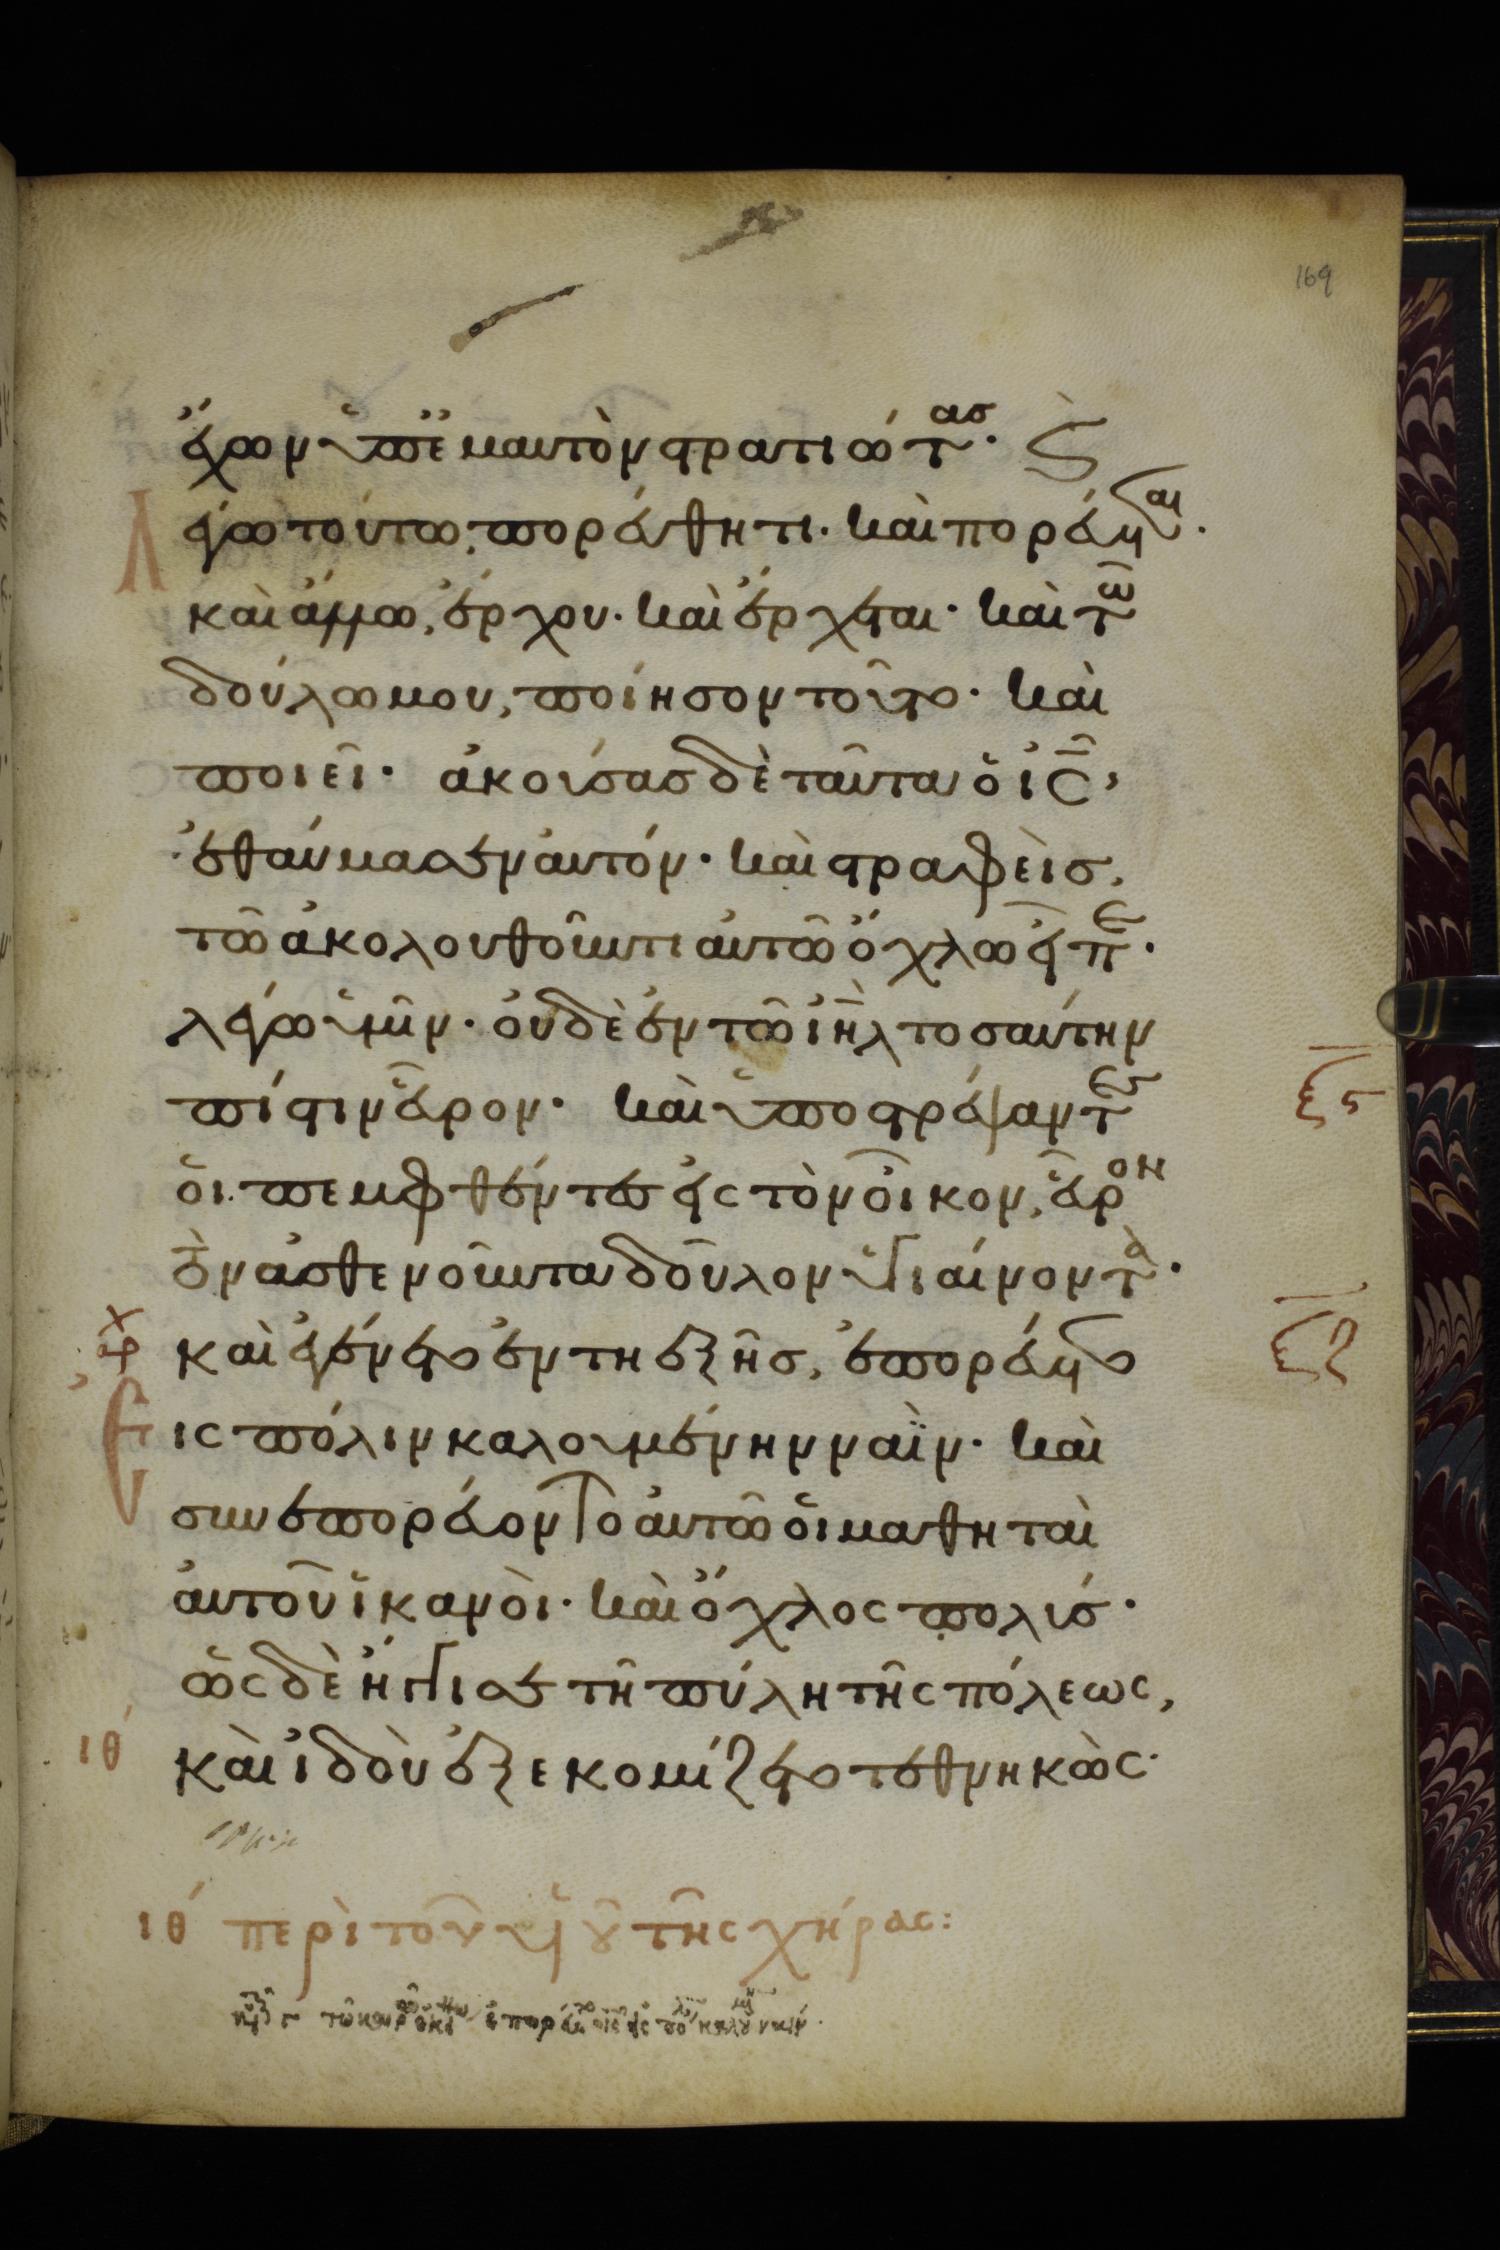 169
ἔχων ὑπ' ἐμαυτὸν στρατιώτας· ϛ
Λέγω τούτω· πορεύθητι. καὶ πορεύεται.
καὶ ἄλλω, ἔρχου. καὶ ἔρχεται. καὶ τῶ
δούλω μου, ποίησον τοῦτο. καὶ
ποιεῖ. ἀκούσας δὲ ταῦτα ὁ ις̅,
ἐθαύμασεν αὐτόν. καὶ στραφεὶς,
τῶ ἀκολουθοῦντι αὐτῶ ὄχλω εἶπε.
λέγω ὑμῖν. οὐδὲ ἐν τῶ ιηλ̅ τοσαύτην
πίστιν εὗρον. καὶ ὑποστρέψαντες
ξϛ
οἱ πεμφθέντες εἰς τὸν οἶκον, εὗρον
τὸν ἀσθενοῦντα δοῦλον ὑγιαίνοντα.
αρχ
καὶ ἐγένετο ἐν τη ἑξῆς, ἐπορεύετο
ξζ
Εἰς πόλιν καλουμένην ναῒν. καὶ
συνεπορεύοντο αὐτῶ οἱ μαθηταὶ
αὐτοῦ ἱκανοὶ. καὶ ὄχλος πολύς.
ὡς δὲ ἤγγισε τῆ πύλη τῆς πόλεως,
ιθ
καὶ ἰδοὺ ἐξεκομίζετο τεθνηκὼς.
ιθ περὶ τοῦ υἱοῦ τῆς χήρας:
τῶ καιρῶ ἐκείνω ἐπορεύετο ὁ ις̅ εἰς πόλιν καλουμένην ναΐν.